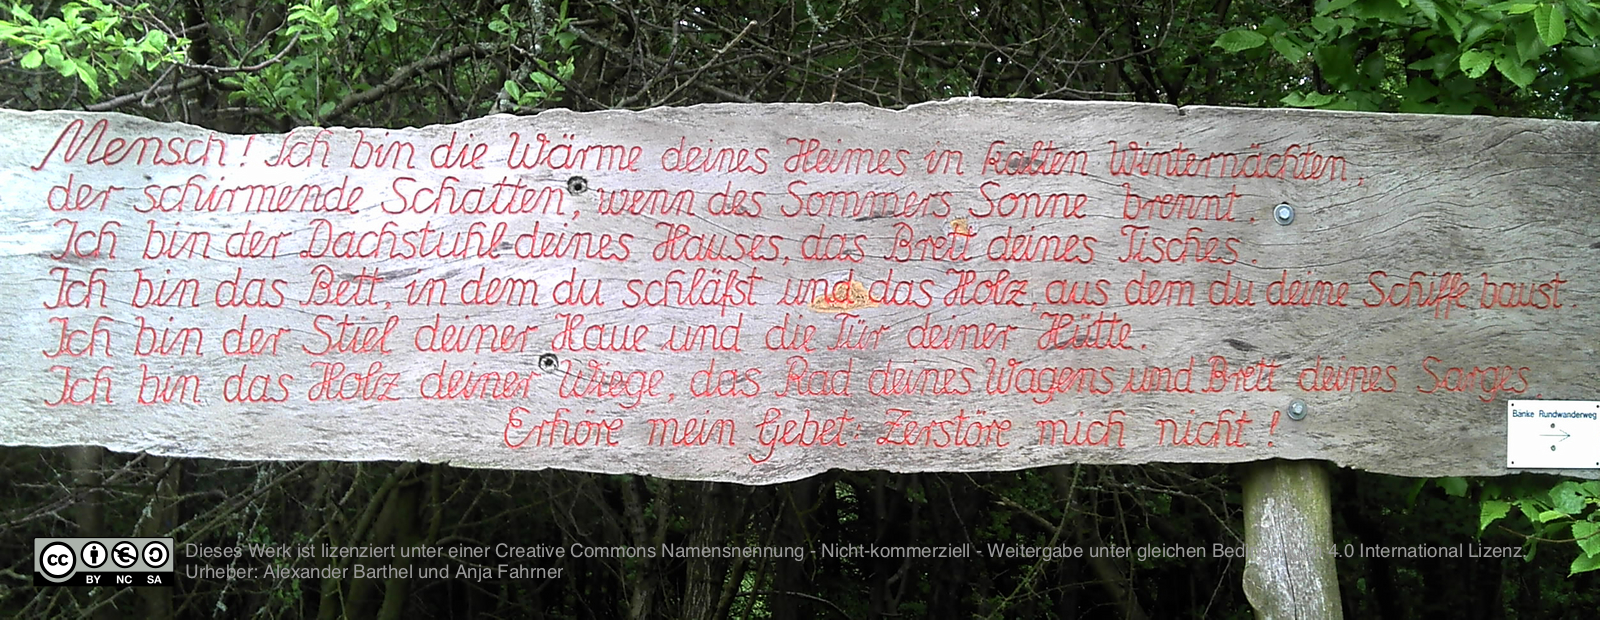 Mensch! Ich bin die Wärme deines Heimes in kalten Winternächten,
der schirmende Schatten, wenn des Sommers Sonne brennt.
Ich bin der Dachstuhl deines Hauses, das Brett deines Tisches.
Ich bin das Bett, in dem du schläfst und das Holz, aus dem du deine Schiffe baust.
Ich bin der Stiel deiner Haue und die Tür deiner Hütte.
Ich bin das Holz deiner Wiege, das Rad deines Wagens und Brett deines Sarges
Erhöre mein Gebet: Zerstöre mich nicht!
Banke Rundwanderweg
cc BY NC SA
Dieses Werk ist lizenziert unter einer Creative Commons Namensnennung - Nicht-kommerziell - Weitergabe unter gleichen 4.0 International Lizenz.
Urheber: Alexander Barthel und Anja Fahrner